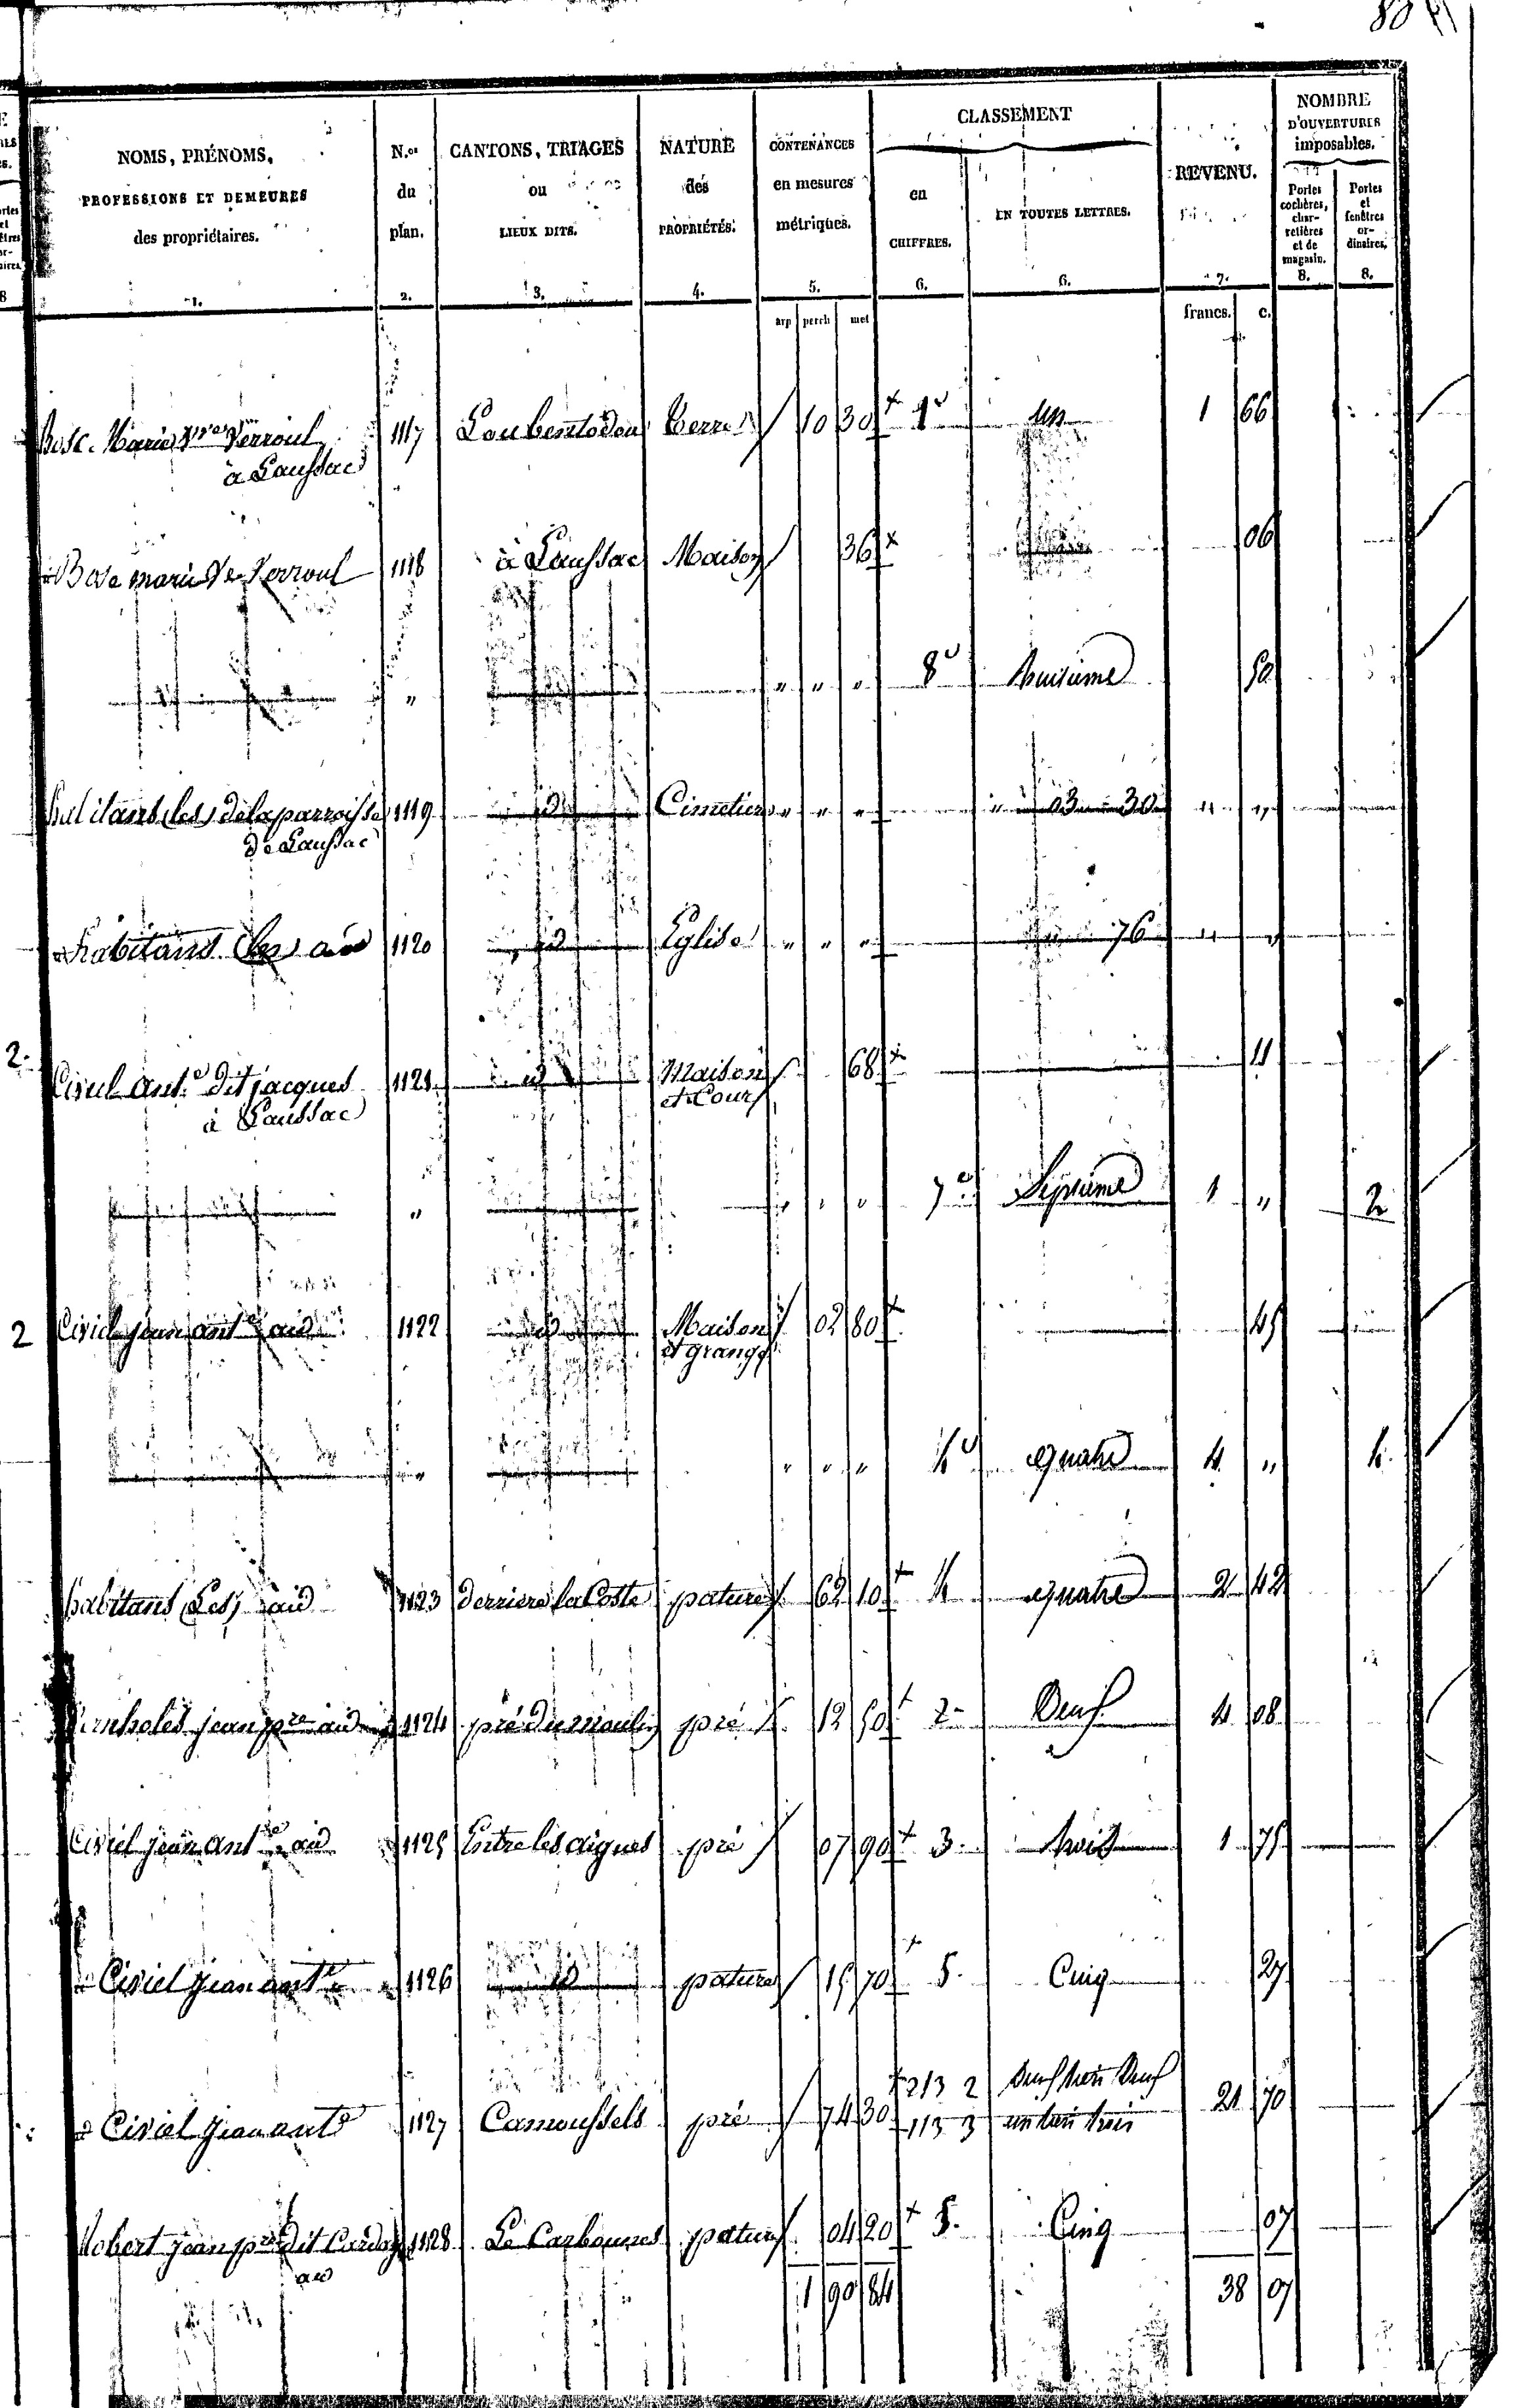 80
NOMS, PRÉNOMS, PROFESSIONS ET DEMEURES des propriétaires. 1.
N.os du plan. 2.
CANTONS, TRIAGES ou LIEUX DITS. 3.
NATURE des PROPRIÉTÉS. 4.
CONTENANCES en mesures métriques. 5.
CLASSEMENT
en CHIFFRES. 6.
EN TOUTES LETTRES. 6.
REVENU. 7.
NOMBRE D'OUVERTURES imposables.
Portes cochères, charretières et de magasin. 8.
Portes et fenêtres ordinaires. 8.
arp perch met francs. c.
Bosc Marie Verroul 1117 Terre 10 30 1e un 1 66
à Laussac
Marie Ve Verroul 1118 à Laussac Maison 36 06
" " " " 8e huitieme 50
habitants (les) de la parroisse 1119 id Cimetiere " " " " 03 30 " "
de Laussac
habitants (les) aid 1120 id Eglise " " " 76 " "
2. Civiel Ante dit jacques 1121 id Maison et Cour 68 11
à Laussac
" " " " 7e Septieme 1 " 2
2 Civiel jean ante aid 1122 id Maison et grange 02 80 45
" " " " 4e quatre 4 " 4.
habitans (Les) aid 1123 derriere la Coste pature 62 10 4 quatre 2 42
jean pre aid 1124 pré du moulin pré 12 50 2 Deux 4 08
Civiel jean ante aid 1125 Entre les aigues pré 07 90 3. trois 1 75
Civiel jean ante 1126 id pature 15 70 5. Cinq 27
Civiel jean ante 1127 Camoussels pré 74 30 2/3 2 Deux tiers Deux 21 70
1/3 3 un tiers trois
Robert jean pre dit 1128 pature 04 20 5. Cinq 07
aid
1 90 84 38 07